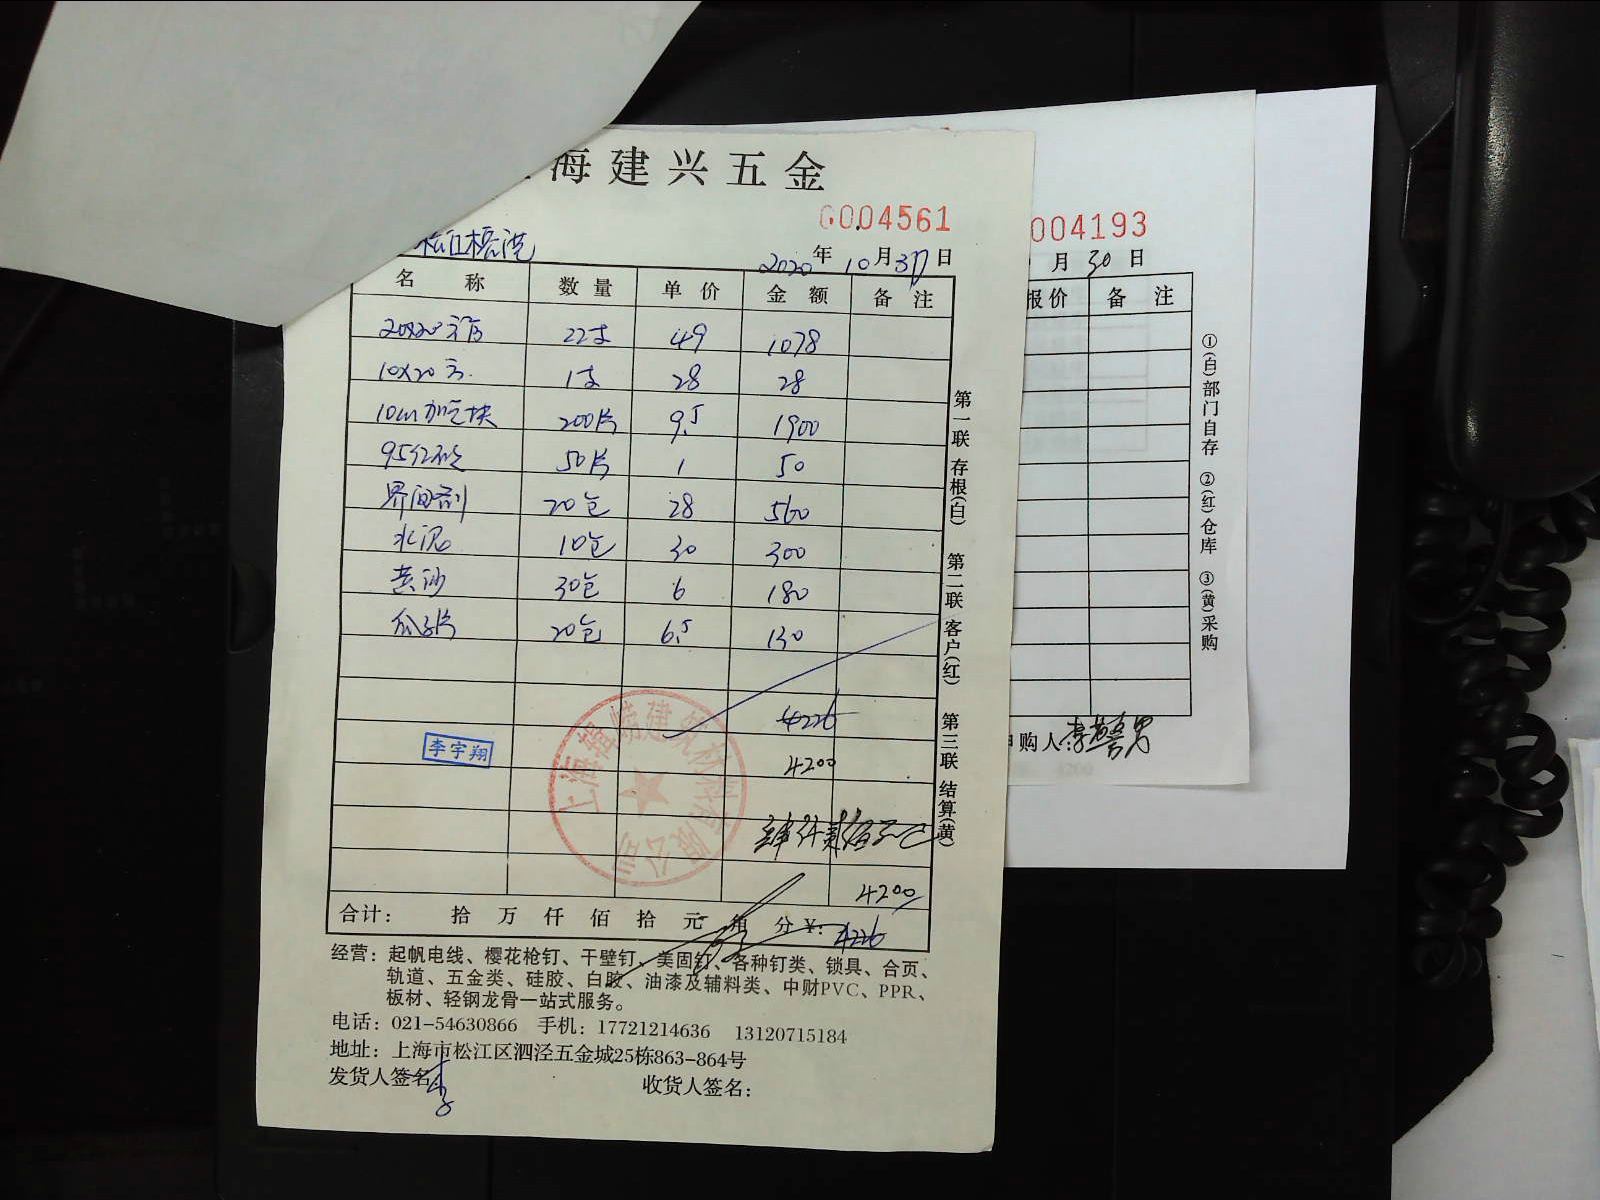 海建兴五金
0004561
2020年10月31日
名称 数量 单价 金额 备注
20x20方管 22支 49 1078
10x20方. 1支 28 28
10cm加气块 200片 9.5 1900
50片 1 50
界面剂 20包 28 560
水泥 10包 30 300
黄沙 30包 6 180
瓜子片 20包 6.5 130
4226
李宇翔
4200
4200
合计: 拾 万 仟 佰 拾 元 角 分 ¥: 4226
经营: 起帆电线、樱花枪钉、干壁钉、美固钉、各种钉类、锁具、合页、
轨道、五金类、硅胶、白胶、油漆及辅料类、中财PVC、PPR、
板材、轻钢龙骨一站式服务。
电话: 021-54630866 手机: 17721214636 13120715184
地址: 上海市松江区泗泾五金城25栋863-864号
发货人签名: 李
收货人签名:
第一联 存根(白) 第二联 客户(红) 第三联 结算(黄)
004193
月30日
报价 备注
①(白)部门自存 ②(红)仓库 ③(黄)采购
购人: